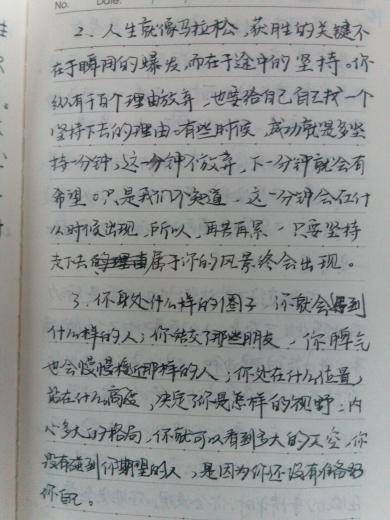 No. Date.
2、人生就像马拉松,获胜的关键不
在于瞬间的爆发,而在于途中的坚持。你
纵有千百个理由放弃,也要给自己自己找一个
坚持下去的理由。有些时候,成功就是多坚
持一分钟,这一分钟不放弃,下一分钟就会有
希望。只是我们不知道,这一分钟会在什
么时候出现,所以,再苦再累,只要坚持
走下去属于你的风景终会出现。
3、你身处什么样的圈子,你就会得到
什么样的人;你结交了那些朋友,你脾气
也会慢慢接近那样的人;你处在什么位置,
站在什么高度,决定了你是怎样的视野;内
心多大的格局,你就可以看到多大的天空,你
没有碰到你期望的人,是因为你还没有准备好
你自己。